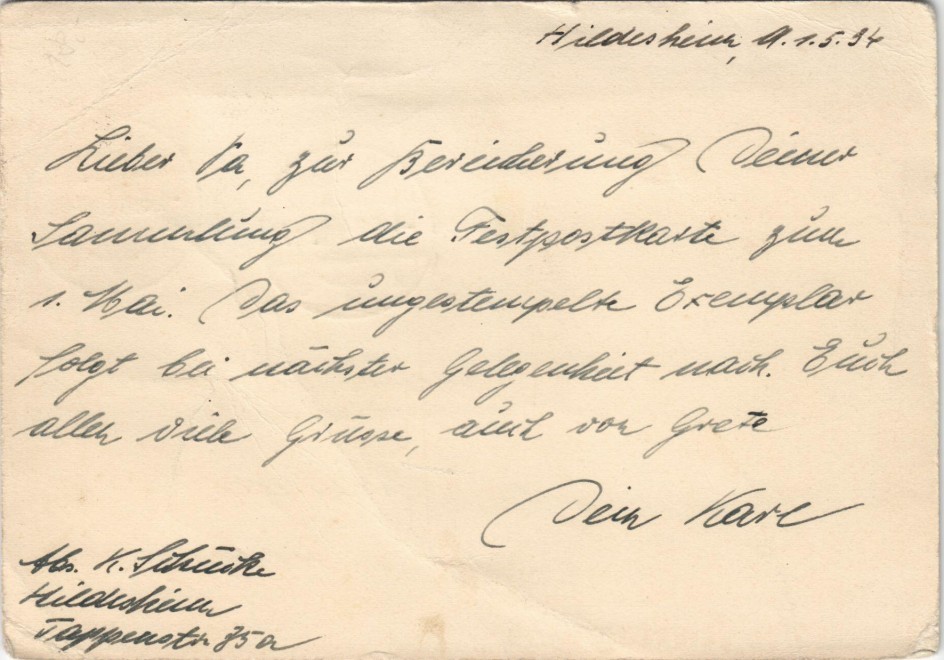 Hildesheim, d. 1.5.34
Lieber Pa, zur Bereicherung Deiner
Sammlung die Festpostkarte zum
1. Mai. Das ungestempelte Exemplar
folgt bei nächster Gelegenheit nach. Euch
allen viele Grüsse, auch von Grete
Dein Karl
Abs. K.
Hildesheim
Tappenstr 35a